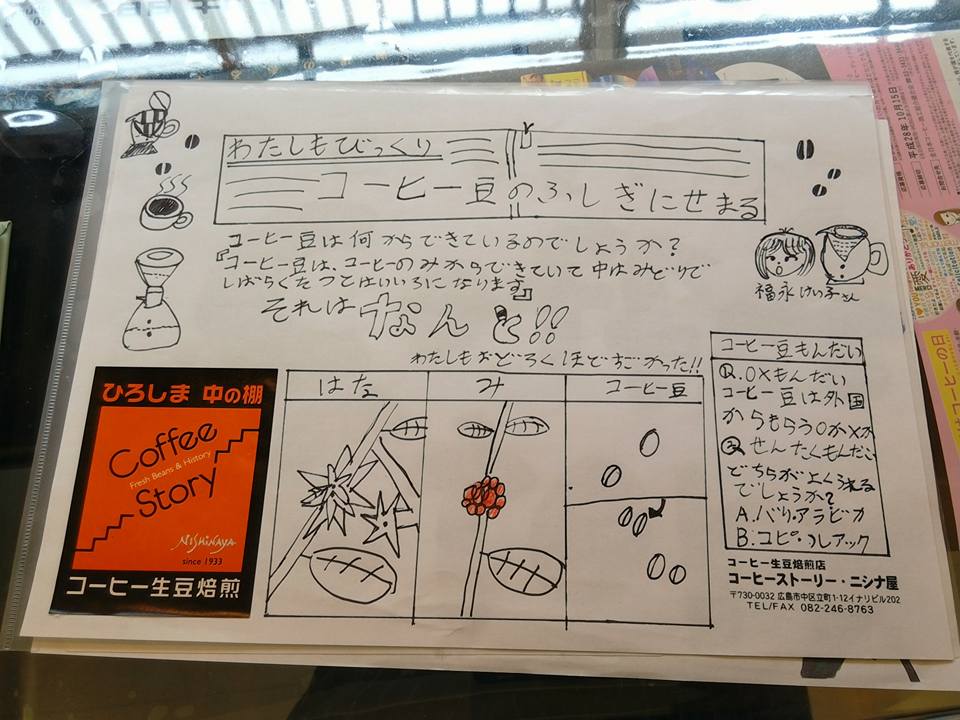 わたしもびっくり
コーヒー豆のふしぎにせまる
コーヒー豆は何からできているのでしょうか？
『コーヒー豆は、コーヒーのみからできていて中はみどりで
しばらくたつとはいいろになります』
それはなんと!!
わたしもおどろくほどすごかった!!
福永けい子さん
はな
み
コーヒー豆
コーヒー豆もんだい
Q.○×もんだい
コーヒー豆は外国
からもらう○か×か
Q.せんたくもんだい
どちらがよくうれる
でしょうか？
A.バリ.アラビカ
B:コピ.ルアック
ひろしま 中の棚
Coffee
Fresh Beans & History
Story
NISHINAYA
since 1933
コーヒー生豆焙煎
コーヒー生豆焙煎店
コーヒーストーリー・ニシナ屋
〒730-0032 広島市中区立町1-12イナリビル202
TEL/FAX 082-246-8763
平成28年10月15日